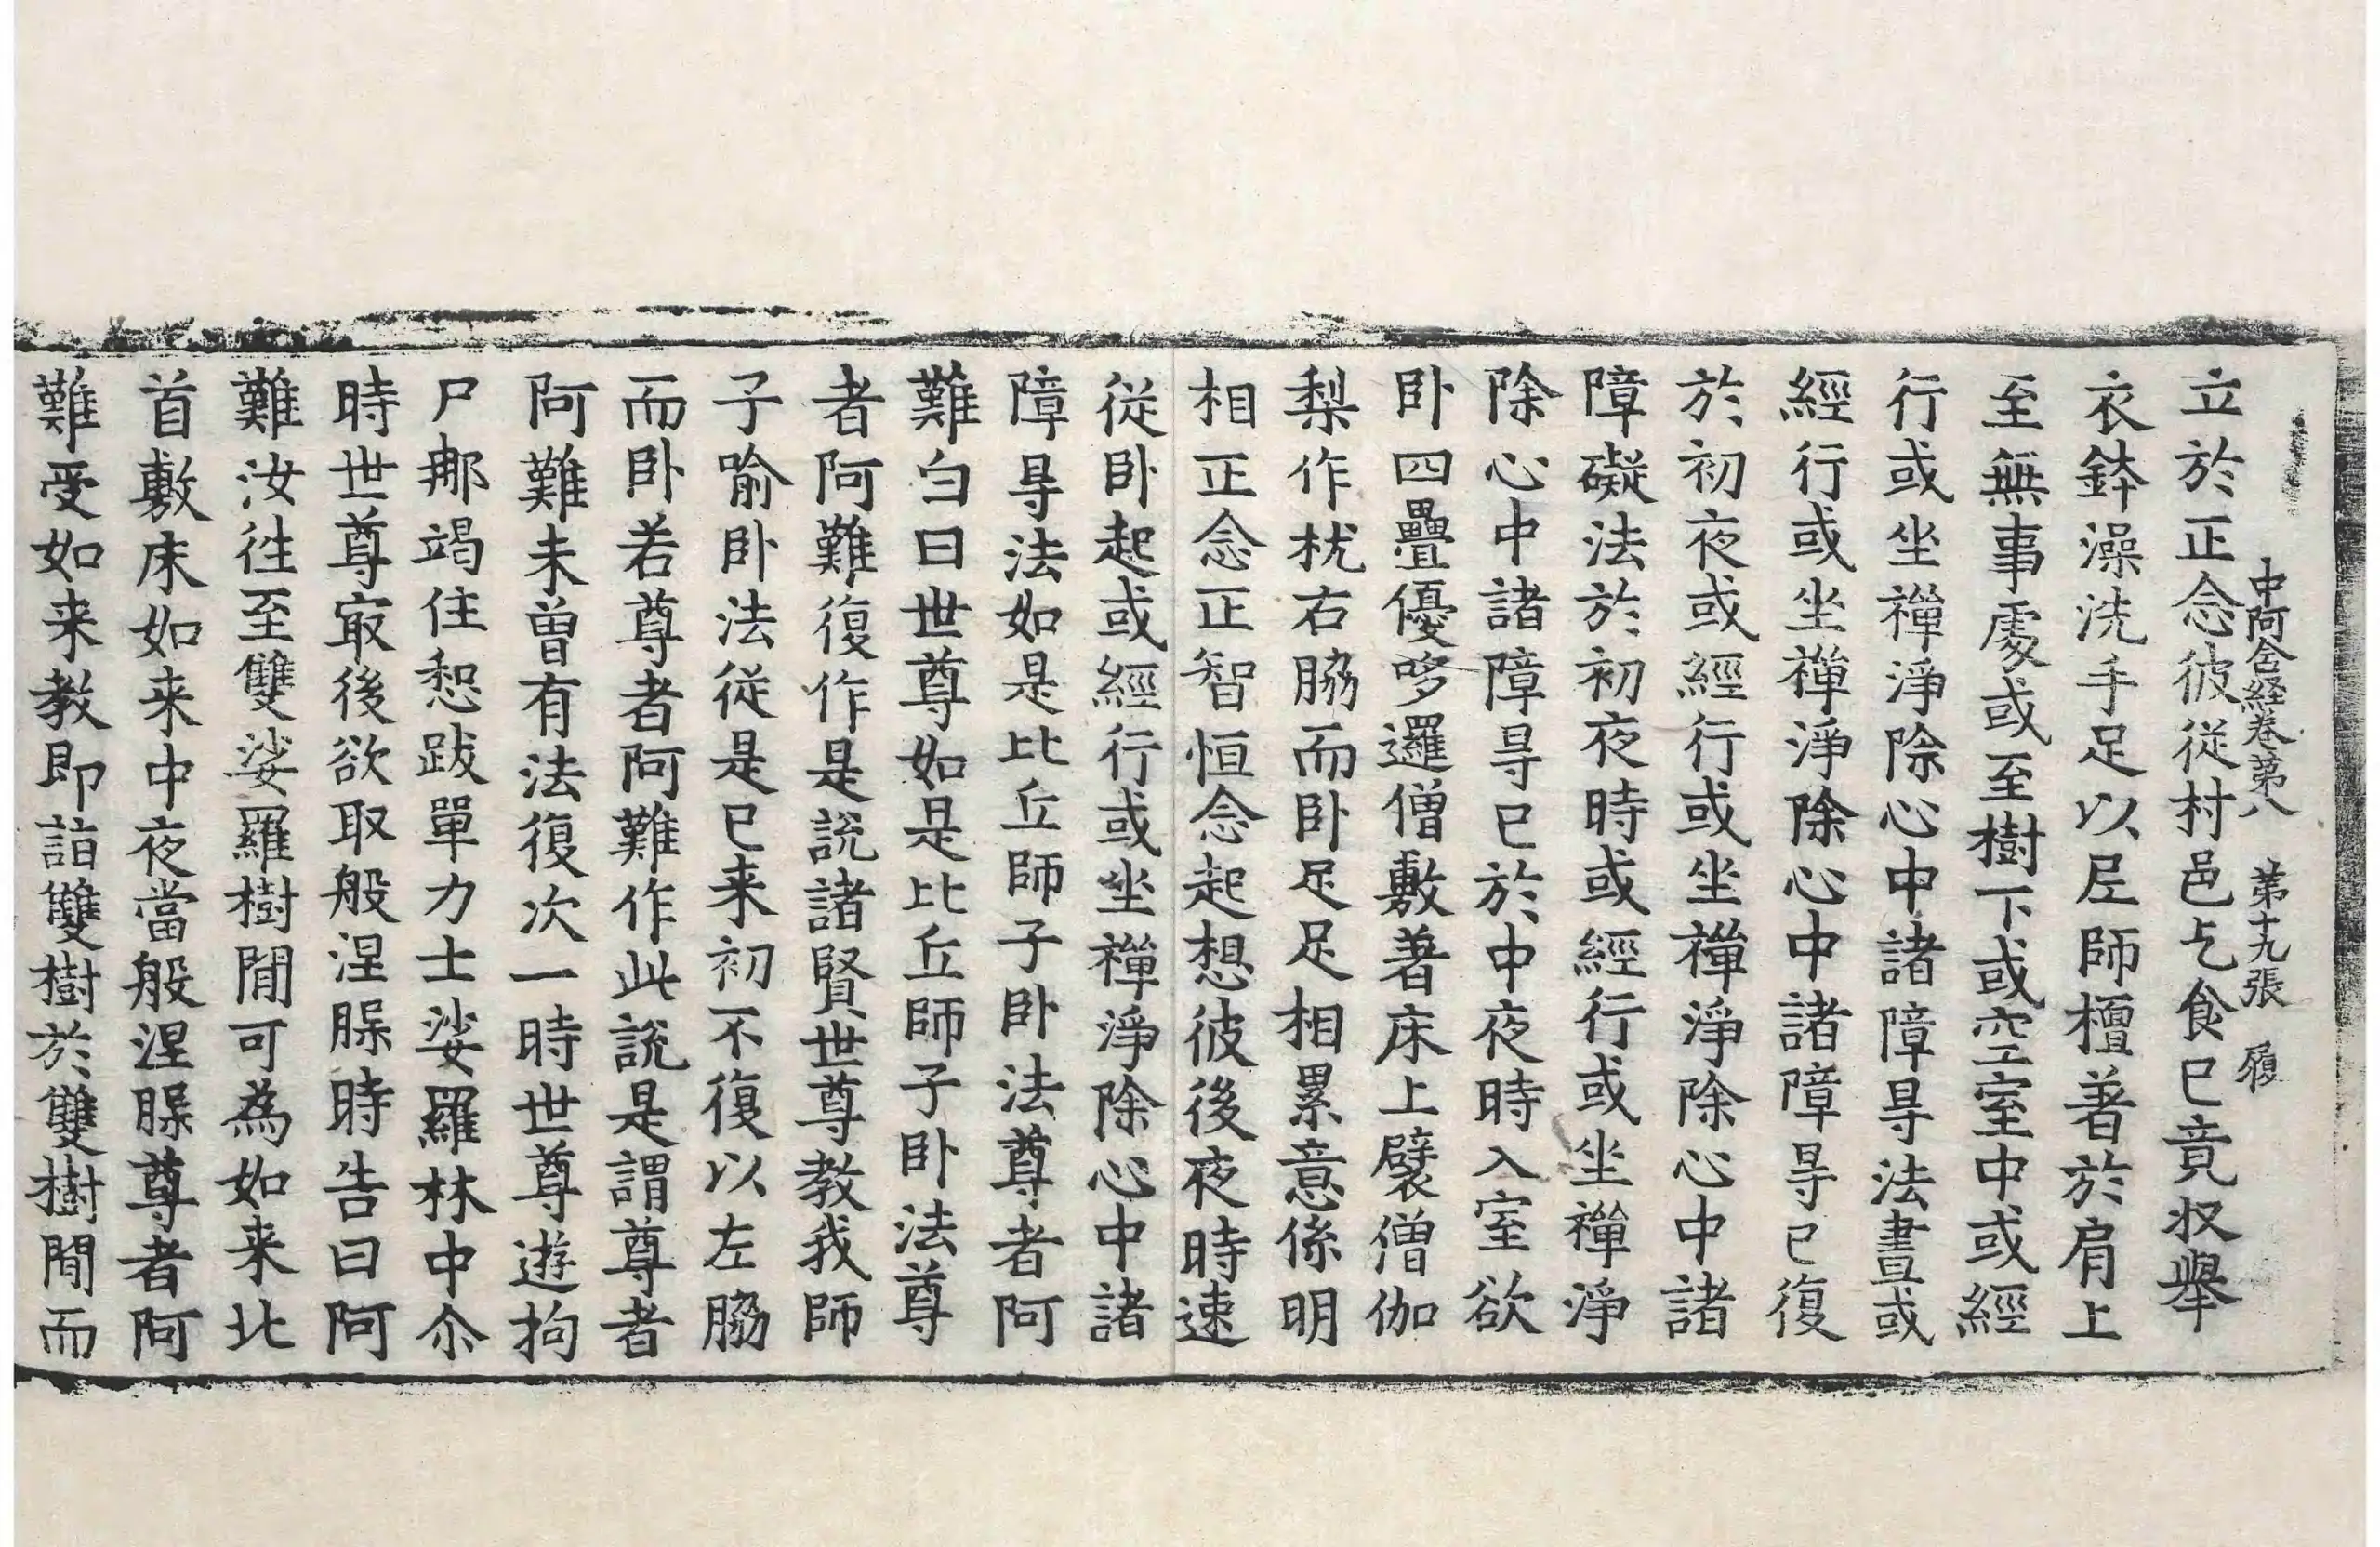 中阿含経巻苐八 苐十九張 履
立於正念彼從村邑乞食已竟収舉
衣鉢澡洗手足以尼師檀著於肩上
至無事處或至樹下或空室中或經
行或坐禪淨除心中諸障㝵法晝或
經行或坐禪淨除心中諸障㝵已復
於初夜或經行或坐禪淨除心中諸
障礙法於初夜時或經行或坐禪淨
除心中諸障㝵已於中夜時入室欲
卧四疊優哆邏僧敷著床上襞僧伽
梨作枕右脇而卧足足相累意係明
相正念正智恒念起想彼後夜時速
從卧起或經行或坐禪淨除心中諸
障㝵法如是比丘師子卧法尊者阿
難白曰世尊如是比丘師子卧法尊
者阿難復作是説諸賢世尊教我師
子喻卧法從是已来初不復以左脇
而卧若尊者阿難作此説是謂尊者
阿難未曾有法復次一時世尊遊拘
尸那竭住惒跋單力士娑羅林中尒
時世尊㝡後欲取般涅槃時告曰阿
難汝往至雙娑羅樹閒可為如来北
首敷床如来中夜當般涅槃尊者阿
難受如来教即詣雙樹於雙樹閒而